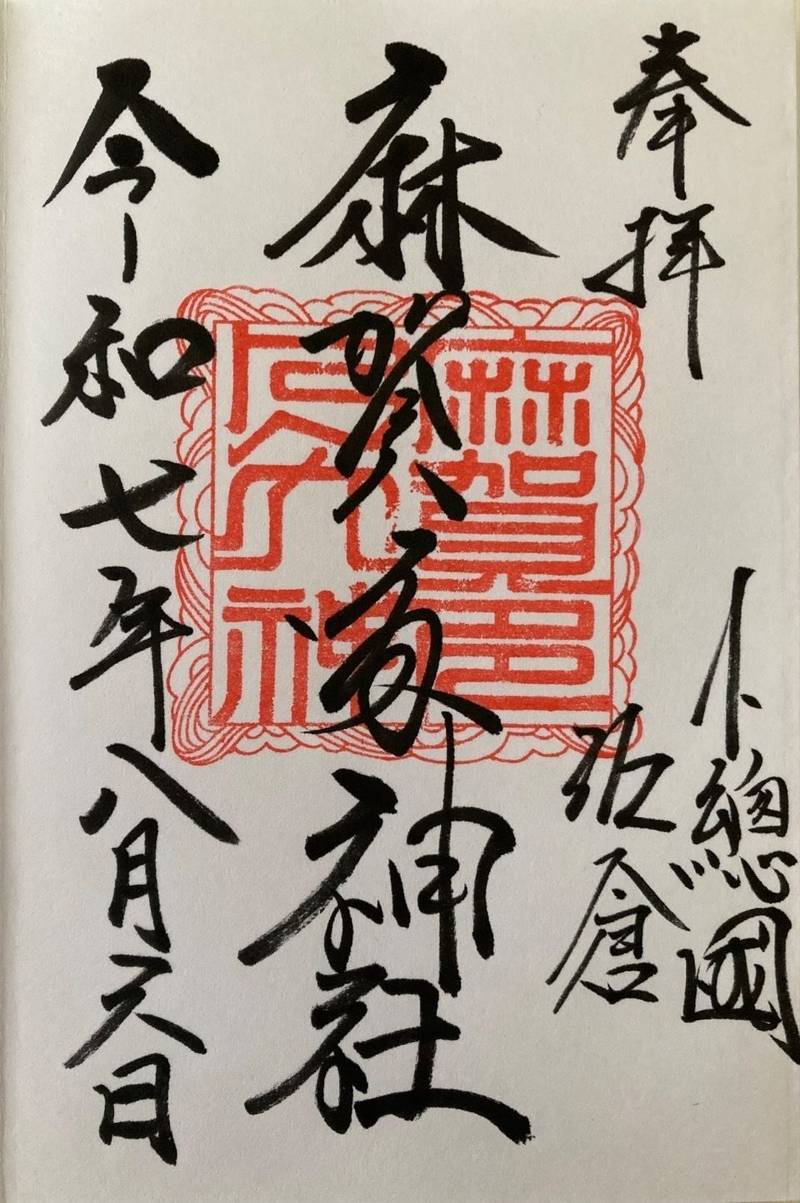 奉拝
下總國
佐倉
麻賀多神社
令和七年八月六日
麻賀多